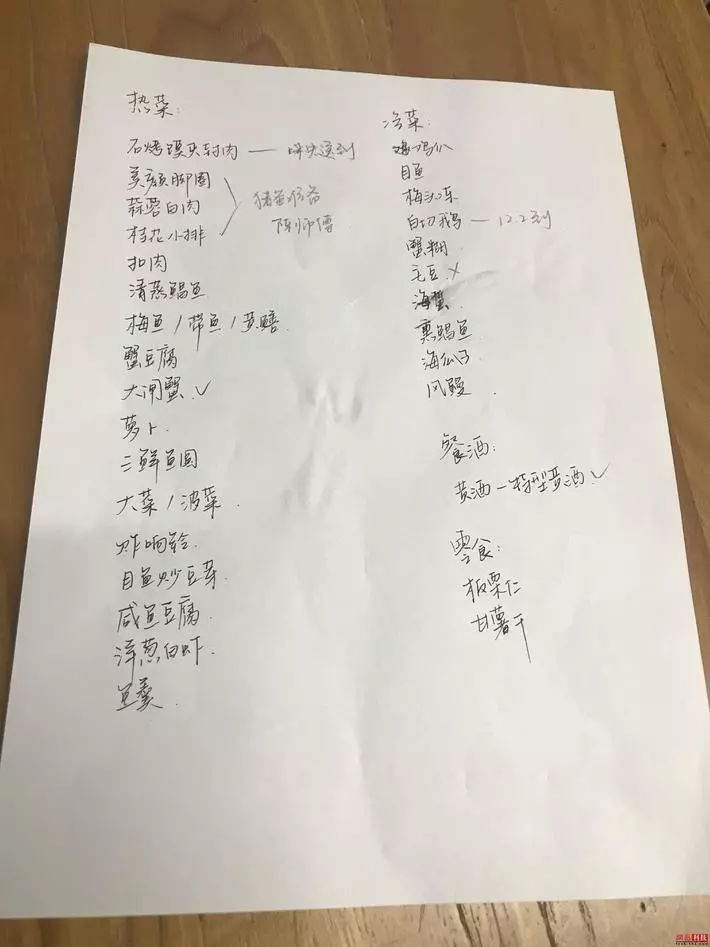 热菜:
石烤馒头衬肉 — 明先送到
美颜脚圈
蒜蓉白肉
桂花小排
猪
陈师傅
扣肉
清蒸鲳鱼
梅鱼/带鱼/黄鳝.
蟹豆腐
大闸蟹.✓
萝卜.
三鲜鱼圆
大菜/菠菜.
炸响铃.
目鱼炒豆芽.
咸鱼豆腐.
洋葱白虾.
鱼羹.
冷菜:
目鱼
梅冻
白切鹅 — 12.2到
蟹糊.
毛豆.×
海蜇.
熏鲳鱼.
海瓜子.
风鳗.
餐酒:
黄酒—特型黄酒✓
零食:
板栗仁
甘薯干
网易科技